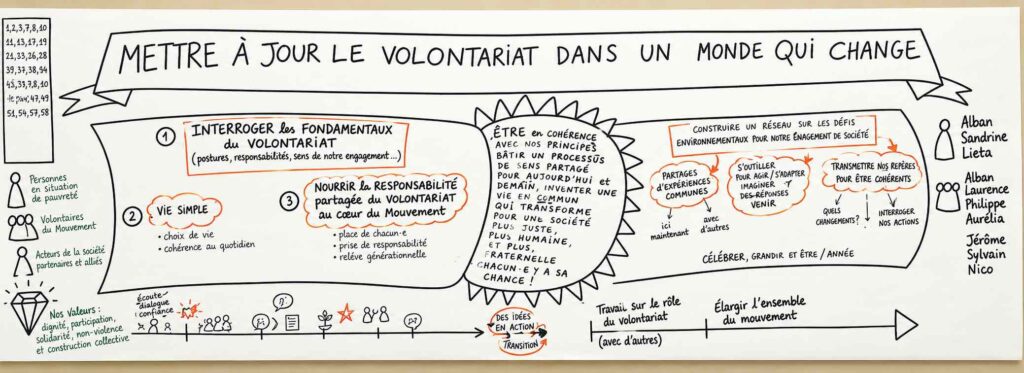 1,2,3,7,8,10
11,13,17,19
21,33,26,28
39,37,38,54
45,33,7,8,10
47,49
51,54,57,58
METTRE À JOUR LE VOLONTARIAT DANS UN MONDE QUI CHANGE
Personnes
en situation
de pauvreté
Volontaires
du Mouvement
Acteurs de la société
partenaires et alliés
Nos Valeurs :
dignité, participation,
solidarité, non-violence
et construction collective
1
INTERROGER les FONDAMENTAUX
du VOLONTARIAT
(postures, responsabilités, sens de notre engagement...)
2
VIE SIMPLE
• choix de vie
• cohérence au quotidien
3
NOURRIR la RESPONSABILITÉ
partagée du VOLONTARIAT
au cœur du Mouvement
• place de chacun·e
• prise de responsabilité
• relève générationnelle
ÊTRE en COHÉRENCE
AVEC NOS PRINCIPES
BÂTIR UN PROCESSUS
DE SENS PARTAGÉ
POUR AUJOURD'HUI et
DEMAIN, INVENTER UNE
VIE EN COMMUN
QUI TRANSFORME
POUR UNE SOCIÉTÉ
PLUS JUSTE,
PLUS HUMAINE,
ET PLUS,
FRATERNELLE
CHACUN·E Y A SA
CHANCE !
CONSTRUIRE UN RÉSEAU SUR LES DÉFIS
ENVIRONNEMENTAUX POUR NOTRE ÉNAGEMENT DE SOCIÉTÉ
PARTAGES
D'EXPÉRIENCES
COMMUNES
ici
maintenant
avec
d'autres
S'OUTILLER
POUR AGIR / S'ADAPTER
IMAGINER
DES-RÉPONSES
VENIR
TRANSMETTRE NOS REPÈRES
POUR ÊTRE COHÉRENTS
QUELS
CHANGEMENTS?
INTERROGER
NOS ACTIONS
CÉLÉBRER, GRANDIR ET ÊTRE / ANNÉE
Alban
Sandrine
Lieta
Alban
Laurence
Philippe
Aurélia
Jérôme
Sylvain
Nico
écoute
dialogue
confiance
DES IDÉES
EN ACTION
TRANSITION
Travail sur le rôle
du volontariat
(avec d'autres)
Élargir l'ensemble
du mouvement